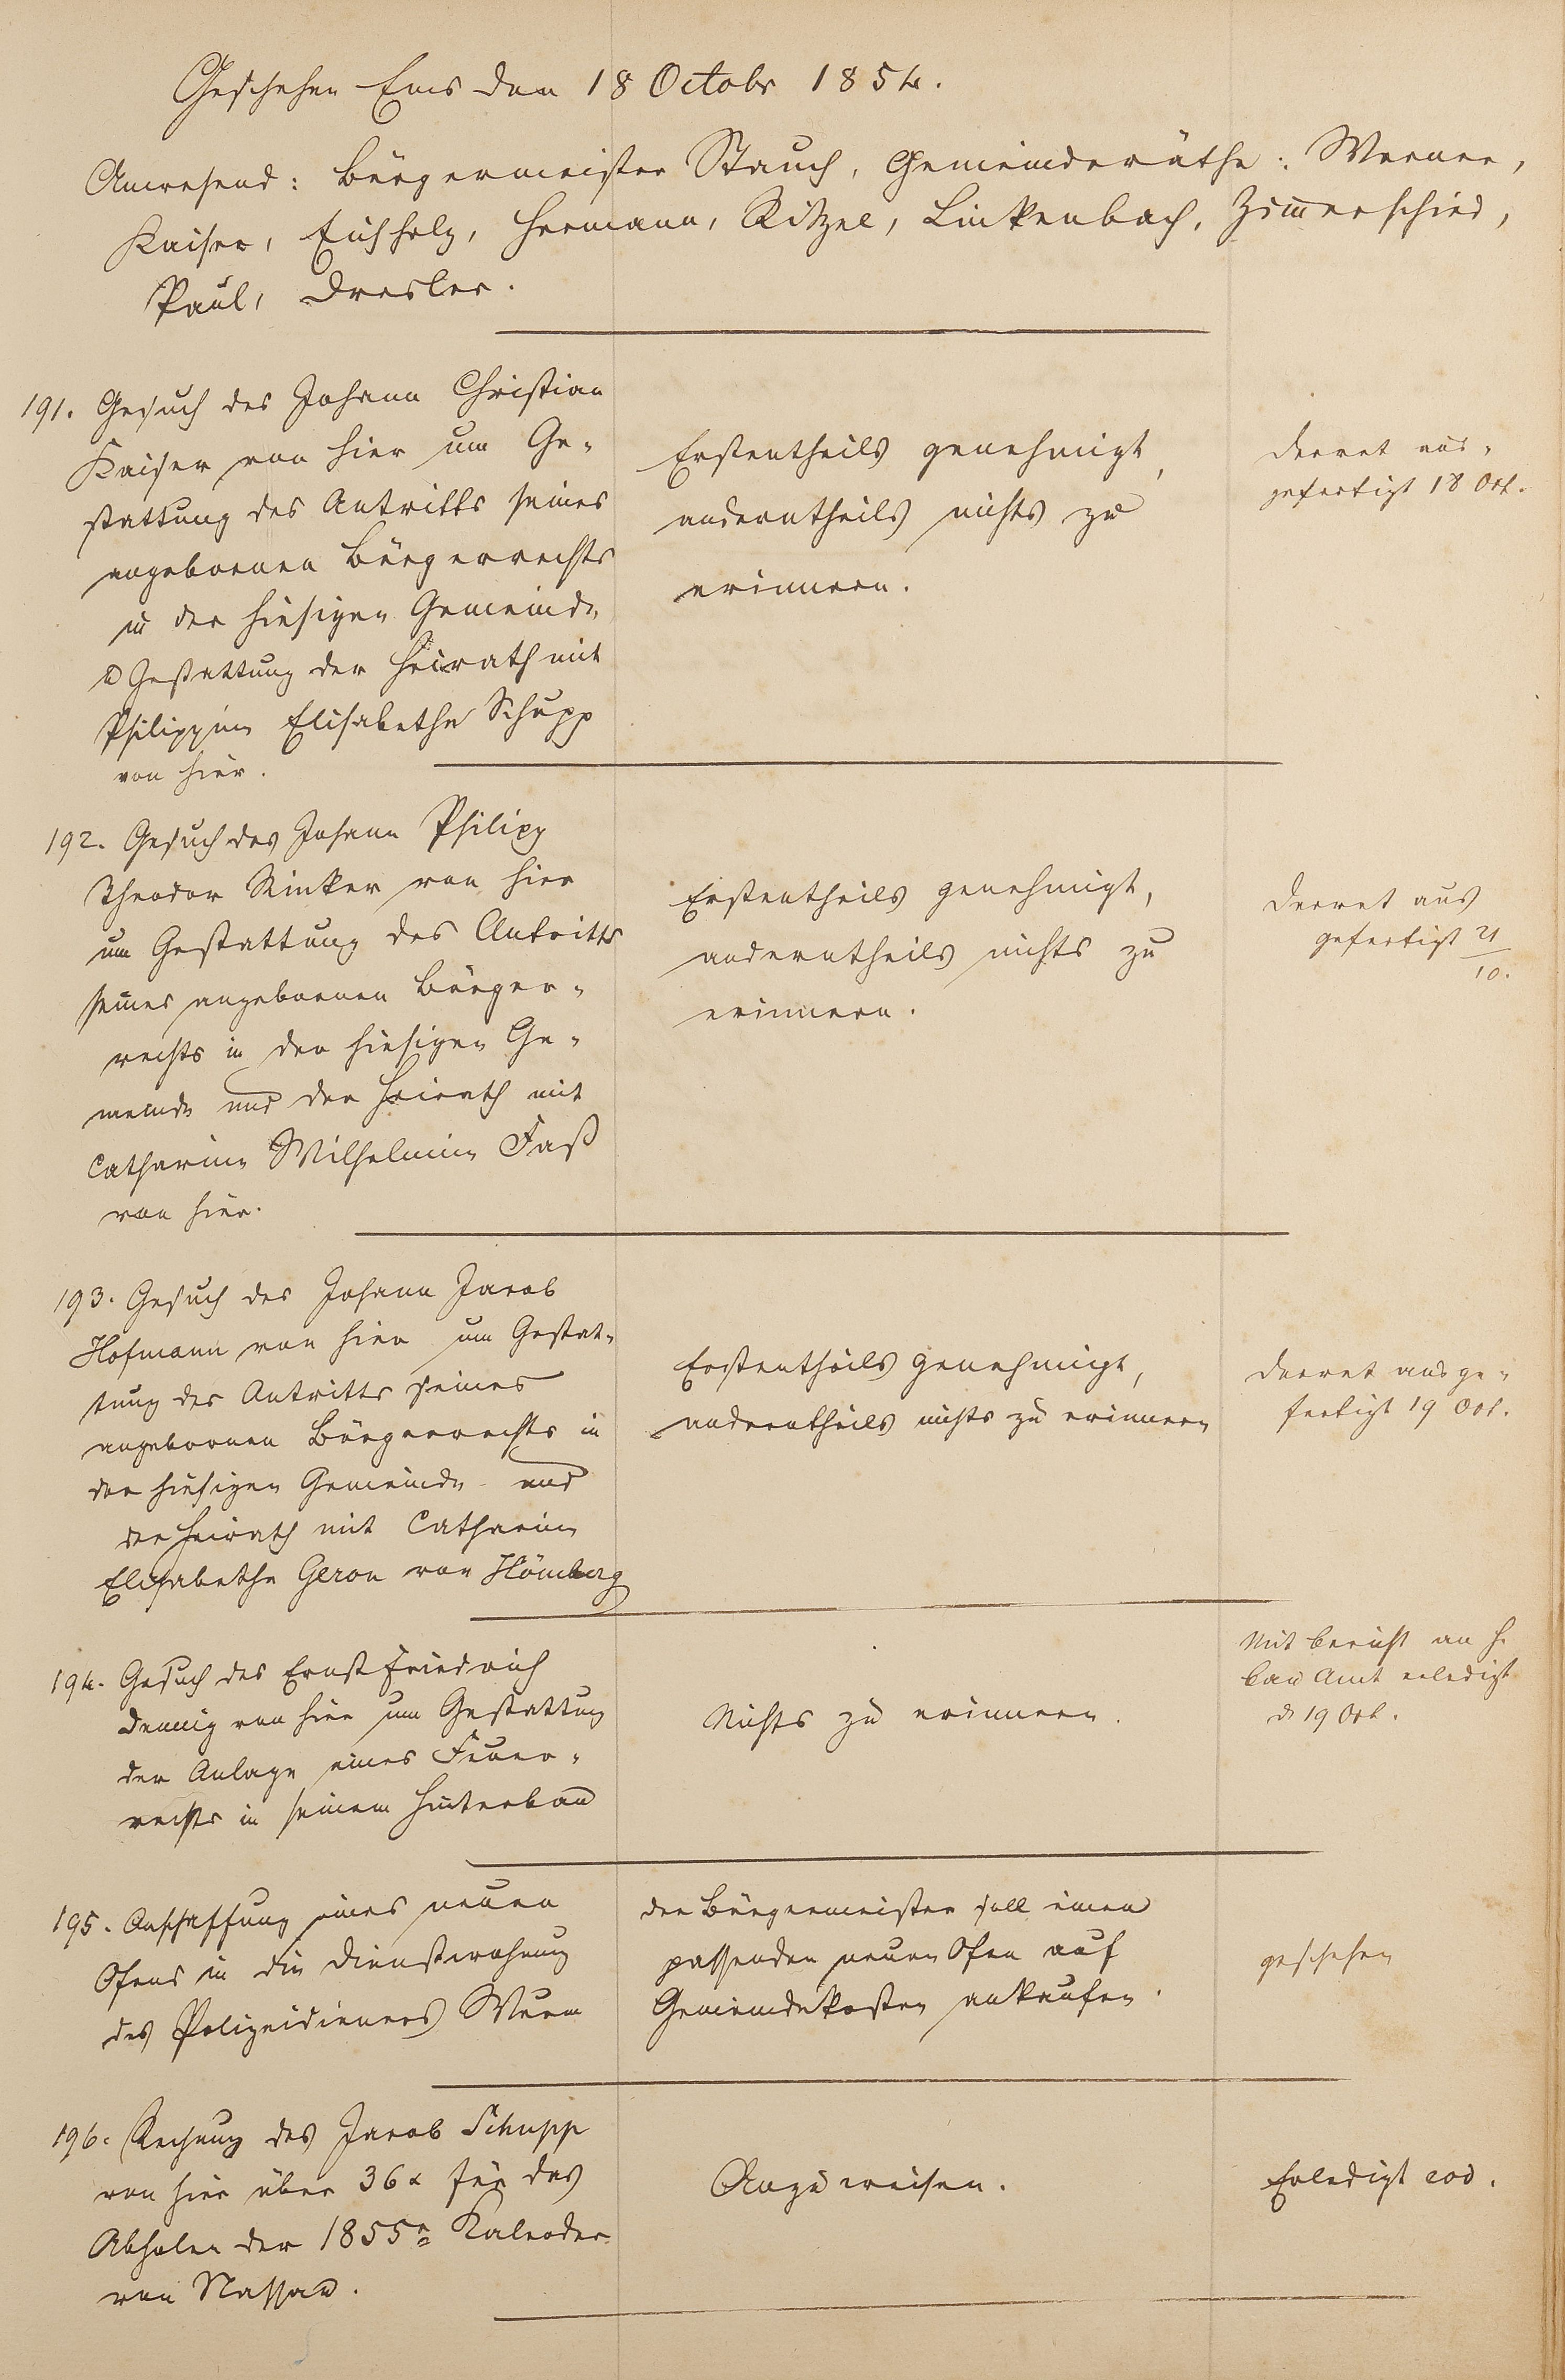 Geschehen Ems den 18 Octobr 1854.
Anwesend: Bürgermeister Stauch, Gemeinderäthe: Werner,
Kaiser, Eichholz, Hermann, Kitzel, Linkenbach, Zimerschied,
Paul, Dresler.
191. Gesuch des Johann Christian
Kaiser von hier um Ge-
stattung des Antritts seines
angebornen Bürgerrechts
in der hiesigen Gemeinde
Gestattung der Heirath mit
Philippine Elisabethe Schupp
von hier.
Erstentheils genehmigt,
anderntheils nichts zu
erinnern.
Decret aus-
gefertigt 18 Oct.
192. Gesuch des Johann Philipp
Theodor Rinker von hier
um Gestattung des Antritts
seines angebornen Bürger-
rechts in der hiesigen Ge-
meinde und der Heirath mit
Catharine Wilhelmine Faß
von hier.
Erstentheils genehmigt,
anderntheils nichts zu
erinnern.
Decret aus
gefertigt 21
10.
193. Gesuch des Johann Jacob
Hofmann von hier um Gestat-
tung des Antritts seines
angebornen Bürgerrechts in
der hiesigen Gemeinde und
der Heirath mit Catharine
Elisabethe Geron von Hömberg
Erstentheils genehmigt,
anderntheils nichts zu erinnern
Decret ausge-
fertigt 19 Oct.
194. Gesuch des Ernst Friedrich
Dennig von hier um Gestattung
der Anlage eines Feuer-
rechts in seinem Hinterbau
Nichts zu erinnern.
Mit Bericht an H.
Bau Amt erledigt
d 19 Oct.
195. Anschaffung eines neuen
Ofens in die Dienstwohnung
des Polizeidieners Wurm
Der Bürgermeister soll einen
passenden neuen Ofen auf
Gemeindekosten ankaufen.
geschehen
196. Rechnung des Jacob Schupp
von hier über 36 x für das
Abholen der 1855r Kalender
von Nassau.
Anzuweisen.
Erledigt eod.